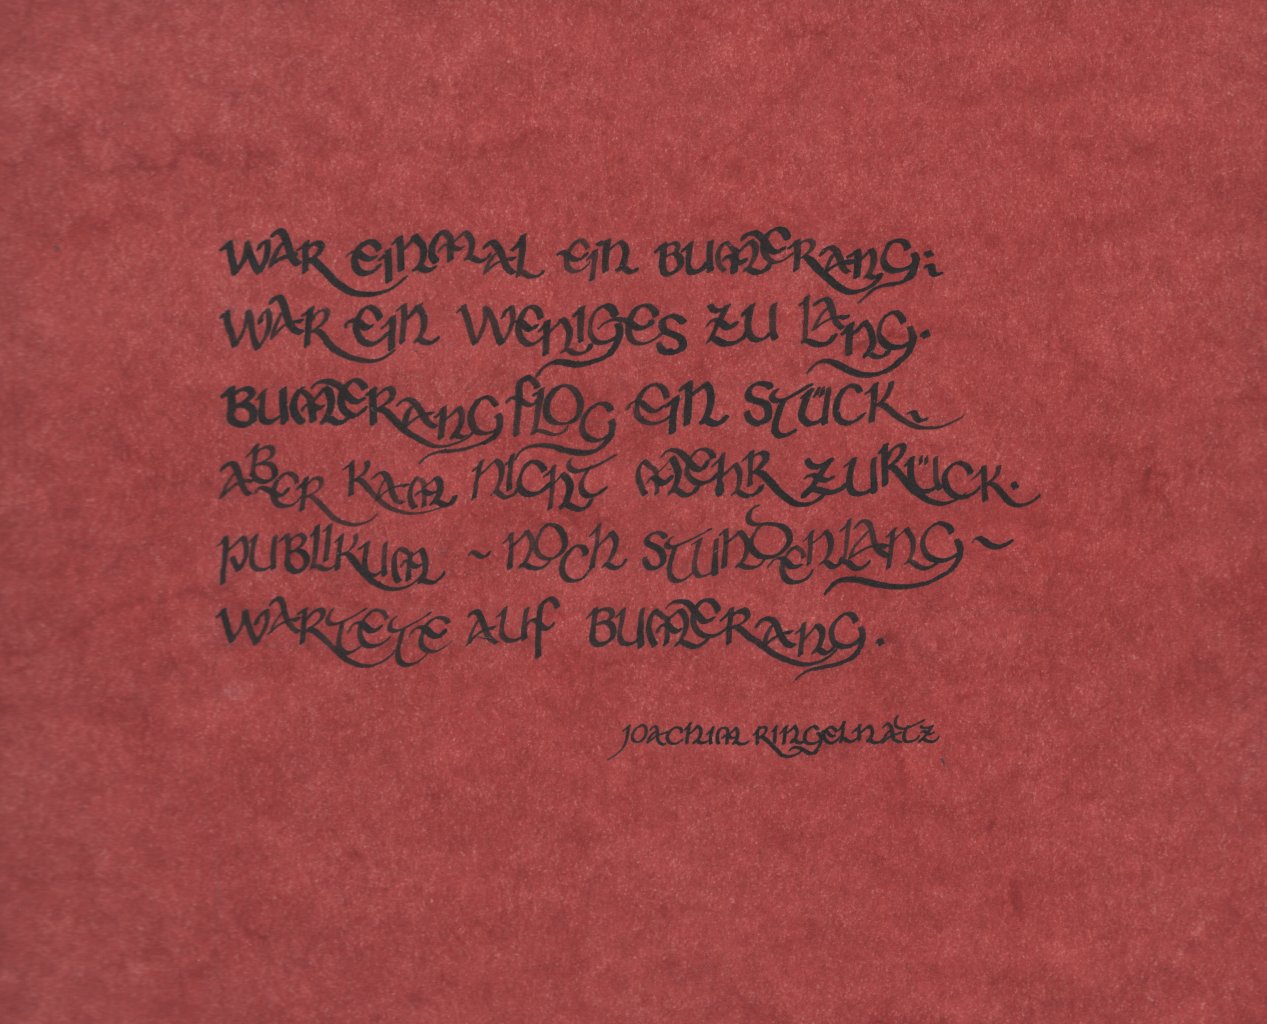 WAR EINMAL EIN BUMERANG;
WAR EIN WENIGES ZU LANG.
BUMERANG FLOG EIN STÜCK,
ABER KAM NICHT MEHR ZURÜCK.
PUBLIKUM ~ NOCH STUNDENLANG ~
WARTETE AUF BUMERANG.
JOACHIM RINGELNATZ